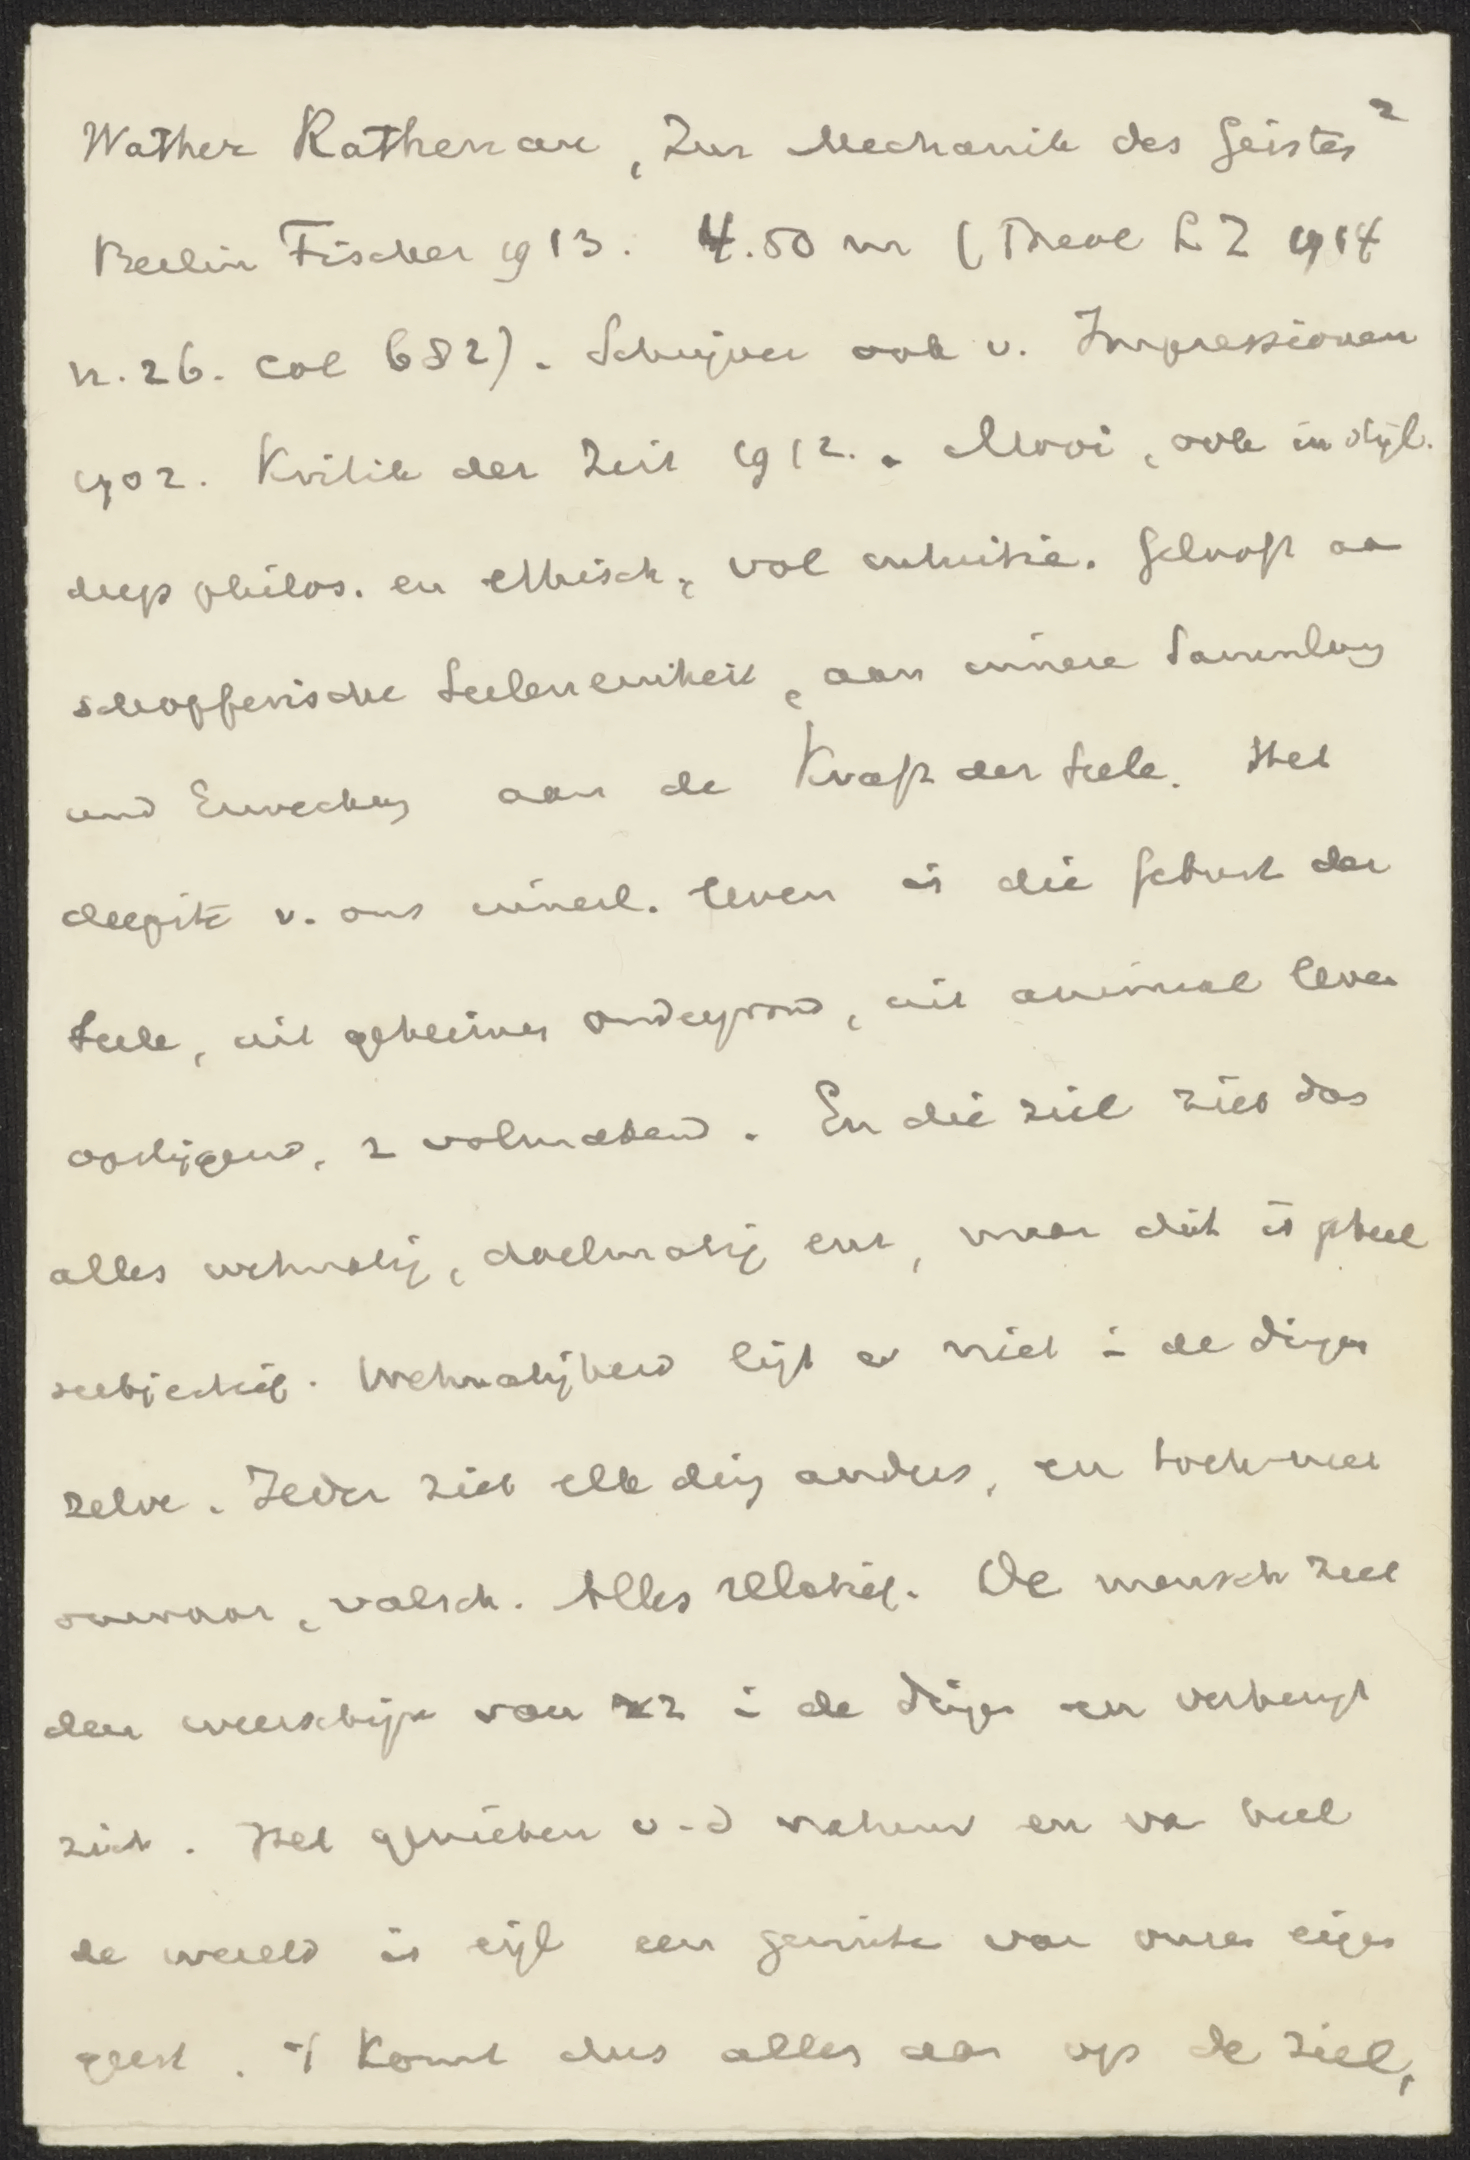 Walther Rathenau, Zur Mechanik des Geistes 2
Berlin Fischer 1913. 4.50 m (Theol L Z 1914
n. 26. Col 682). Schrijver ook v. Impressionen
1902. Kritik der Zeit 1912. Mooi, ook in stijl.
diep philos. en ethisch, vol intuitie. Gelooft aa
schopferische Seeleneinheit, aan innere Sammlung
und Erweckung aan de Kraft der Seele. Het
diepste v. ons innerl. leven is die Geburt der
Seele, uit geheimen ondergrond, uit animaal leven
opstijgend, z volmakend. En die ziel ziet das
alles wetmatig, doelmatig enz, maar dit is geheel
subjectief. Wetmatigheid ligt er niet i de dingen
zelve. Ieder ziet elk ding anders, en toch niet
onwaar, valsch. Alles relatief. De mensch ziet
den weerschijn van zz i de dingen en verheugt
zich. Het genieten v. d natuur en va heel
de wereld is eigl een genieten van onzen eigen
geest. 't Komt dus alles aan op de ziel,